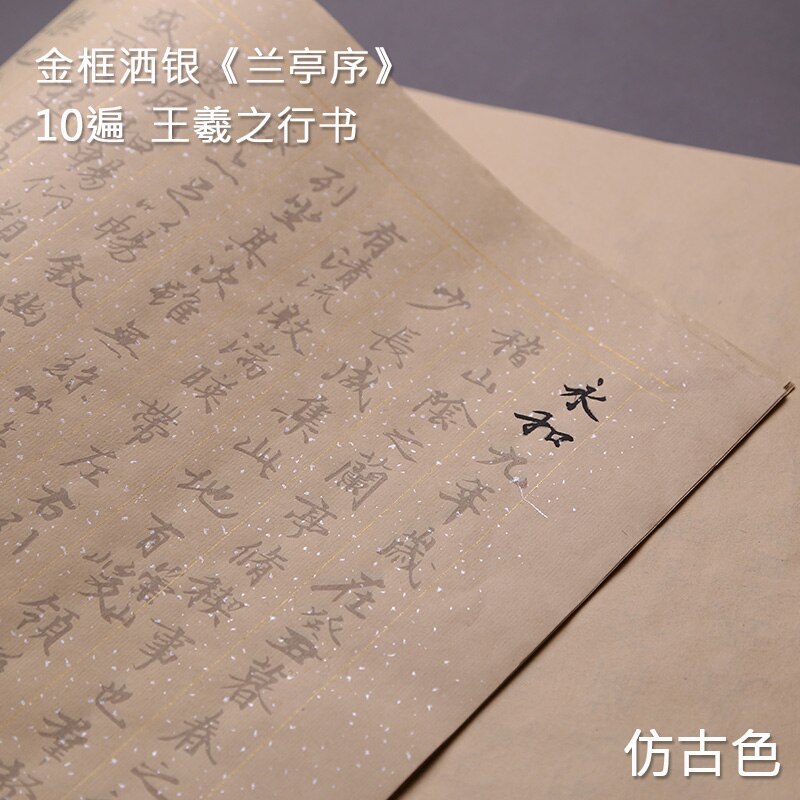 金框洒银《兰亭序》
10遍 王羲之行书
永和九年歲在癸丑暮春之
稽山陰之蘭亭脩禊事也羣
少長咸集此地有崇山峻領
有清流激湍暎帶左右引
列坐其次雖無絲竹
足以暢叙幽
仿古色